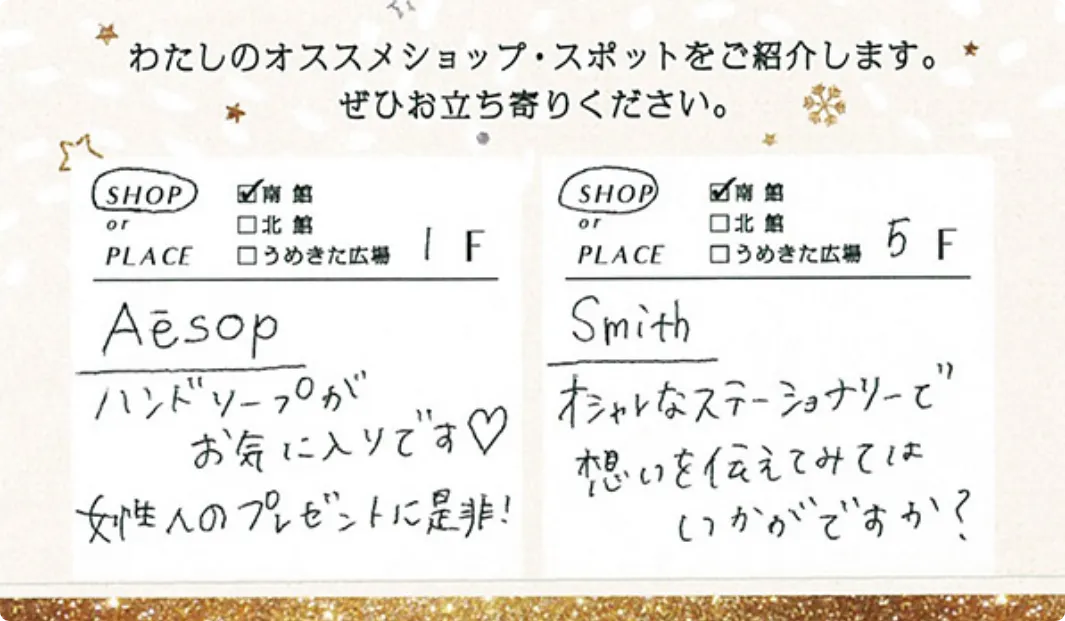 わたしのオススメショップ・スポットをご紹介します。
ぜひお立ち寄りください。
SHOP
or
PLACE
☑南館
□北館
□うめきた広場
1 F
Aēsop
ハンドソープが
お気に入りです♡
女性へのプレゼントに是非!
SHOP
or
PLACE
☑南館
□北館
□うめきた広場
5 F
Smith
オシャレなステーショナリーで
想いを伝えてみては
いかがですか?